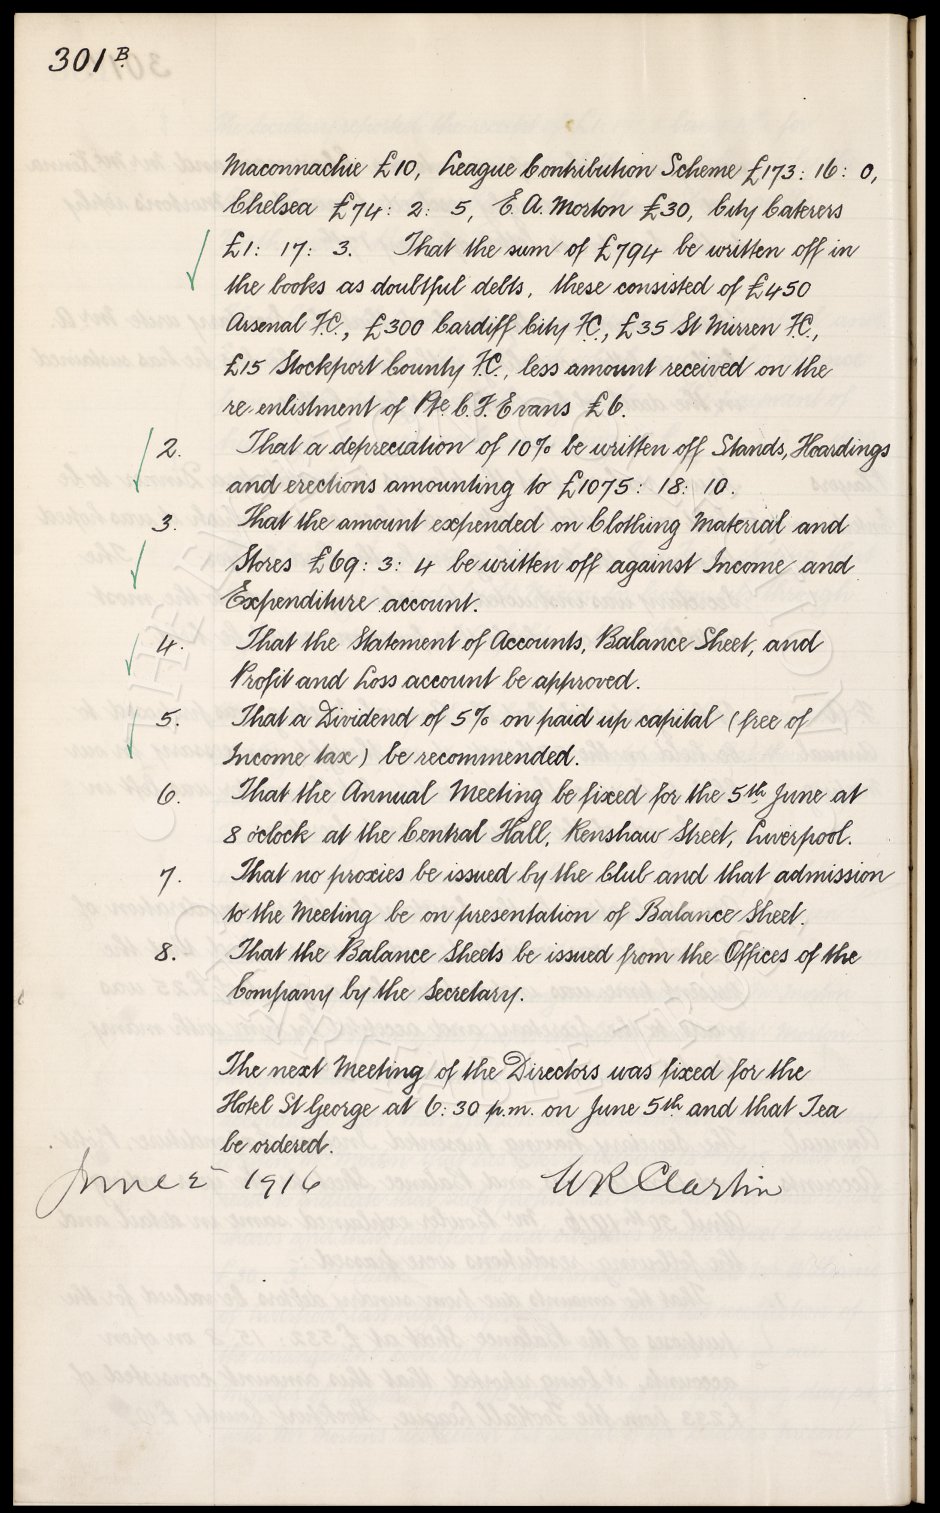 301 B.
Maconnachie £10, League Contribution Scheme £173: 16: 0,
Chelsea £74: 2: 5, E. A. Morton £30, City Caterers
£1: 17: 3. That the sum of £794 be written off in
the books as doubtful debts, these consisted of £450
Arsenal F.C., £300 Cardiff City F.C., £35 St Mirren F.C.,
£15 Stockport County F.C., less amount received on the
re-enlistment of Pte C. F. Evans £6.
2. That a depreciation of 10% be written off Stands, Hoardings
and erections amounting to £1075: 18: 10.
3. That the amount expended on Clothing Material and
Stores £69: 3: 4 be written off against Income and
Expenditure account.
4. That the Statement of Accounts, Balance Sheet, and
Profit and Loss account be approved.
5. That a Dividend of 5% on paid up capital (free of
Income tax) be recommended.
6. That the Annual Meeting be fixed for the 5th June at
8 o'clock at the Central Hall, Renshaw Street, Liverpool.
7. That no proxies be issued by the Club and that admission
to the Meeting be on presentation of Balance Sheet.
8. That the Balance Sheets be issued from the Offices of the
Company by the Secretary.
The next Meeting of the Directors was fixed for the
Hotel St George at 6:30 p.m. on June 5th and that Tea
be ordered.
June 5 1916 W R Clayton